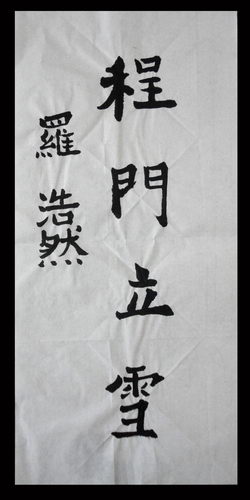 程門立雪
羅浩然